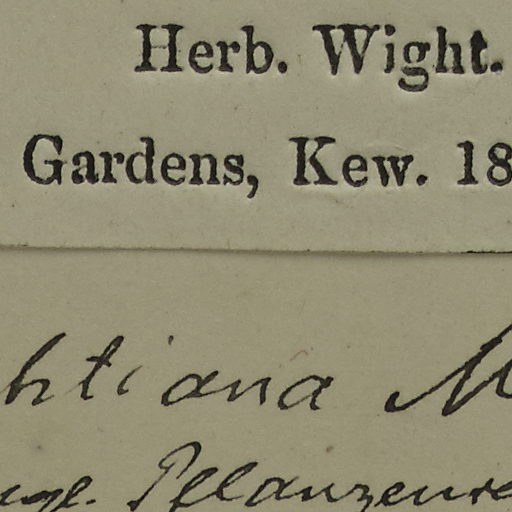 Herb. Wight.
Gardens, Kew. 18
htiana M
ngl. Pflanzenre